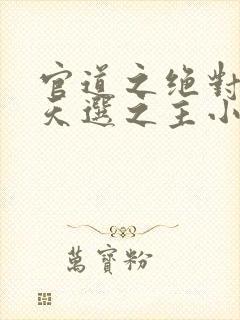 官道之绝對
天選之主小
萬寶粉